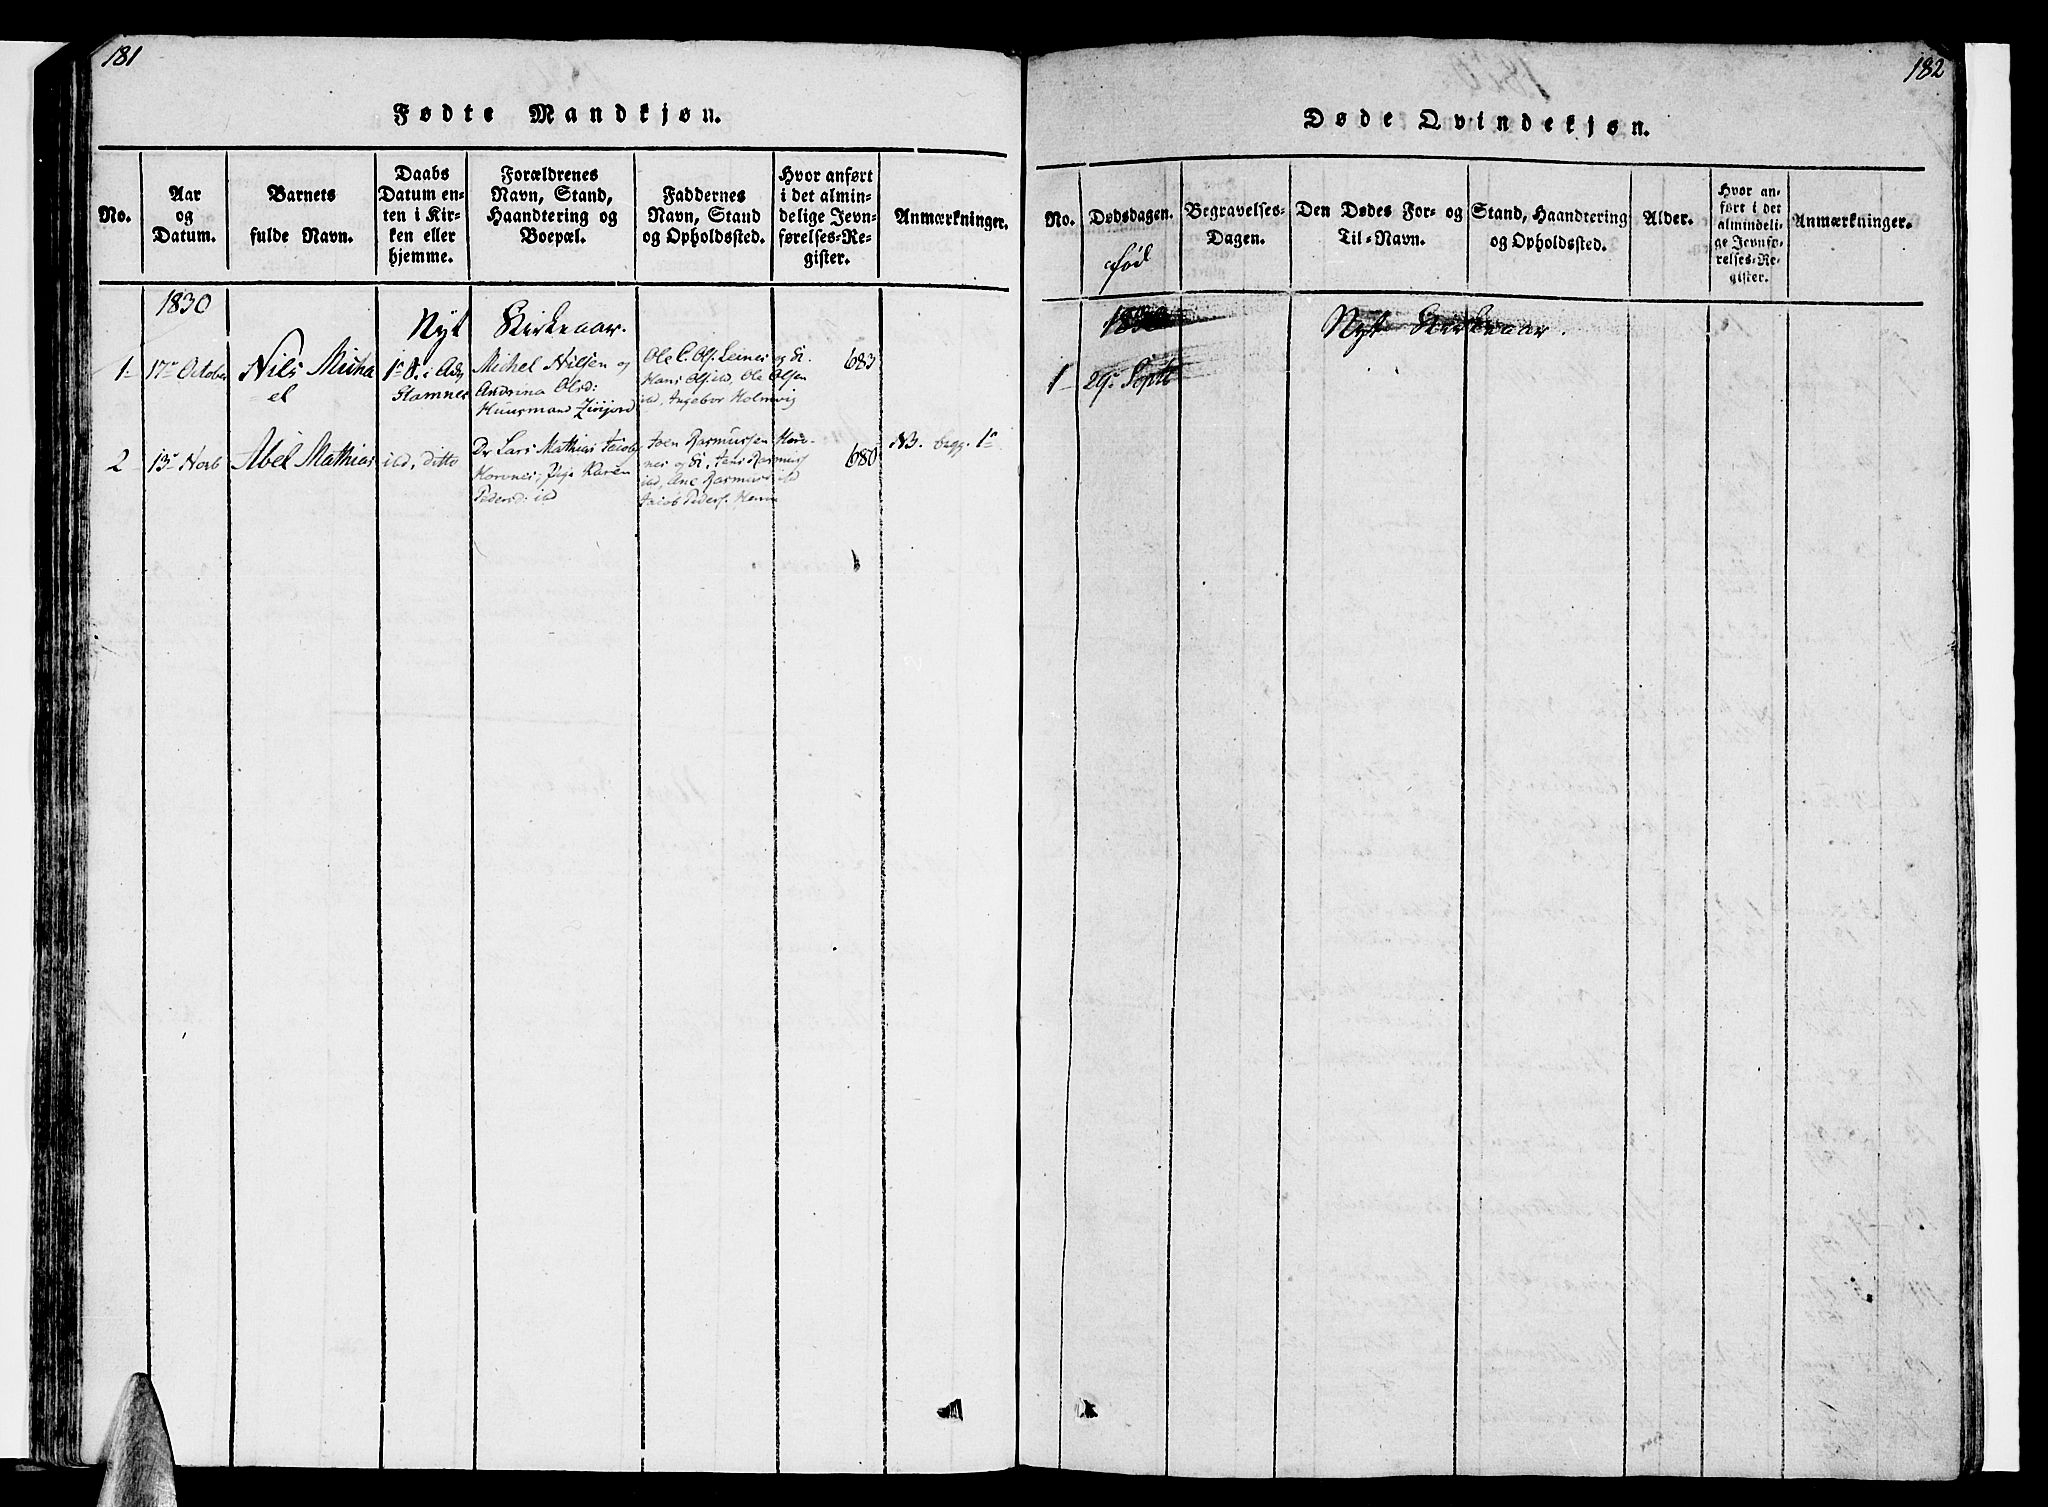 181
Fødte Mandkjøn.
No.
Aar
og
Datum.
Barnets
fulde Navn.
Daabs
Datum en-
ten i Kir-
ken eller
hjemme.
Forældrenes
Navn, Stand,
Haandtering og
Boepæl.
Faddernes
Navn, Stand
og Opholdssted.
Hvor anført
i det almin-
delige Jevn-
førelses-Re-
gister.
Anmærkninger.
1830
Nyt Kirkeaar.
1
17de October
Nils Micha
el
Stamnes
Michel Nilsen og
Andrina Olsd:
Huusmand
Ole C. Ols. Leines og K.
Hans Ols ibd, Ole Olsen
ibd, Ingebor Holmvig
683
2
13de Novb
Abel Mathias
ibd, ditto
Lars Mathias Jacobs
Horvnes, Pige Karen
Pedersd: ibd
Joen Rasmussen Horv-
nes og K, Jens Rasmus
ibd, Ane Rasmus ibd
Jacob Peders.
680
NB. 1
182
Døde Qvindekjøn.
No.
Dødsdagen.
fød
Begravelses-
Dagen.
Den Dødes For- og
Til-Navn.
Stand, Haandtering
og Opholdssted.
Alder.
Hvor an-
ført i det
almindeli-
ge Jevnfø-
relses-Re-
gister.
Anmærkninger.
1830
Nyt Kirkeaar.
1
29de Septb